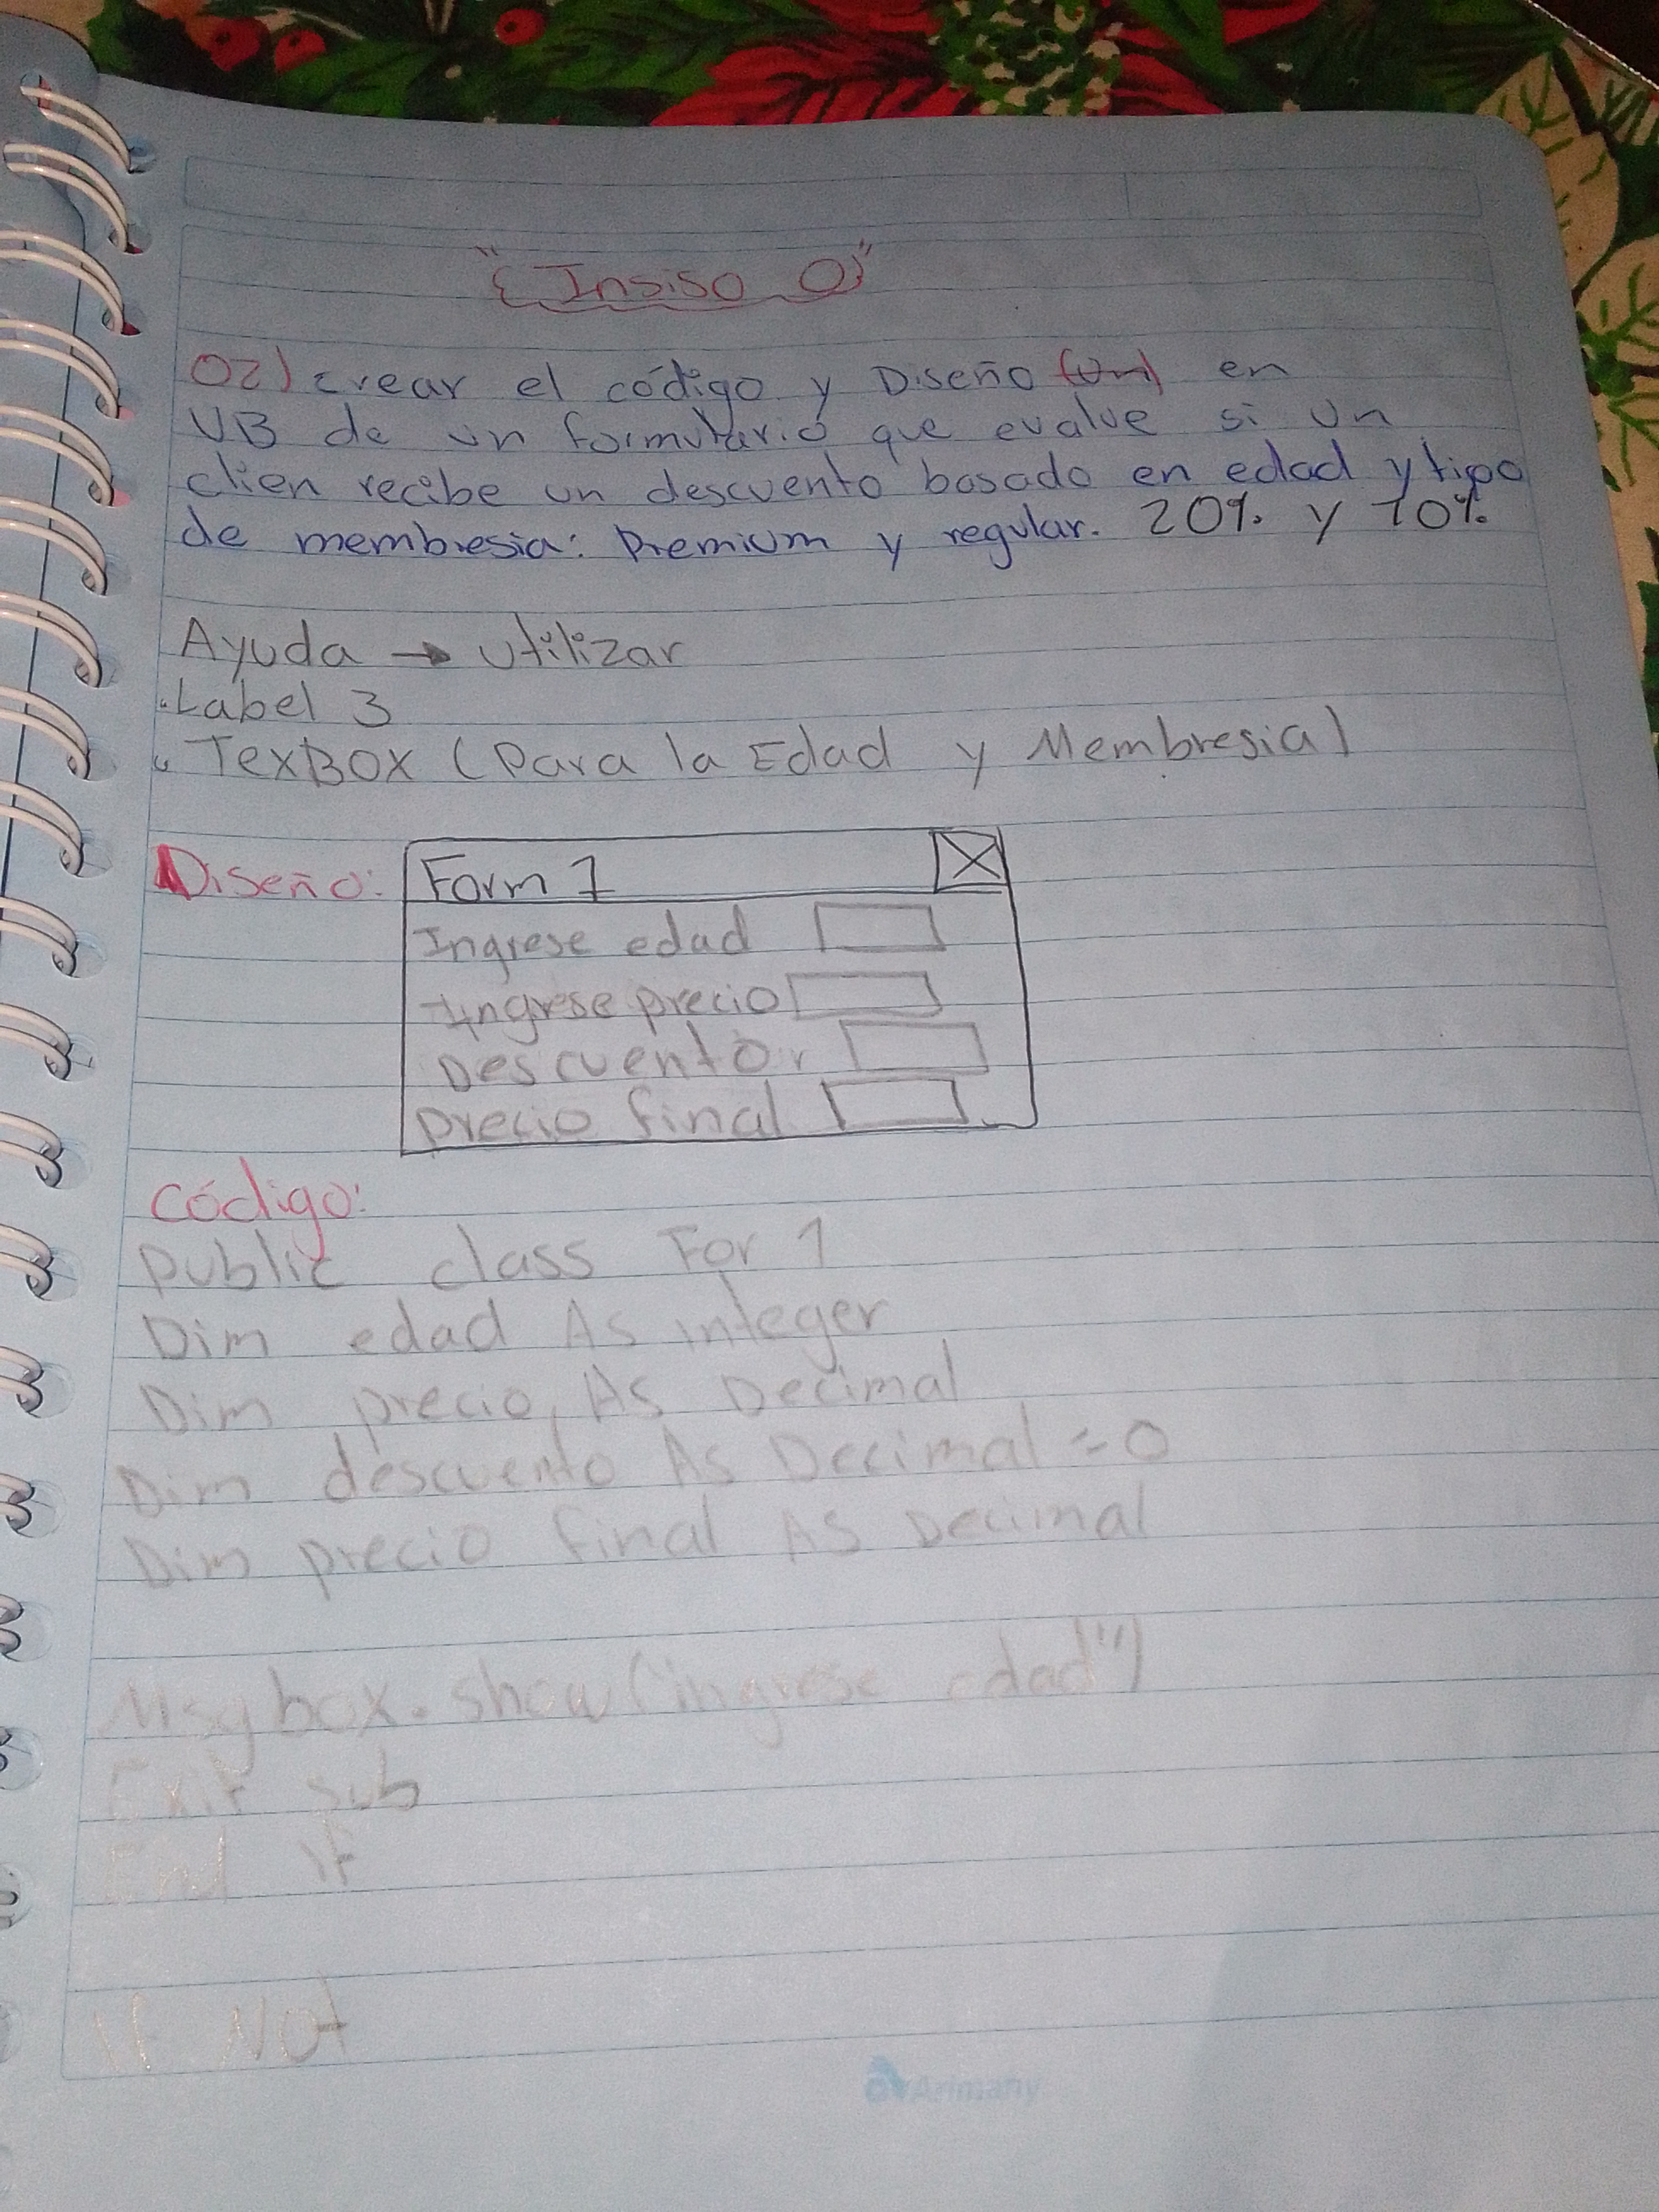 "Insiso O"
02) crear el código y Diseño en
VB de un formulario que evalue si un
clien recibe un descuento basado en edad y tipo
de membresia: Premium y regular. 20% y 10%
Ayuda → utilizar
. Label 3
. TexBox (Para la Edad y Membresia)
Diseño:
Form 1 X
Ingrese edad
Ingrese precio
Descuento
precio final
código:
public class For 1
Dim edad As integer
Dim precio As Decimal
Dim descuento As Decimal = 0
Dim precio final As Decimal
Msgbox.show("ingrese edad")
Exit sub
End If
If Not
Arimany